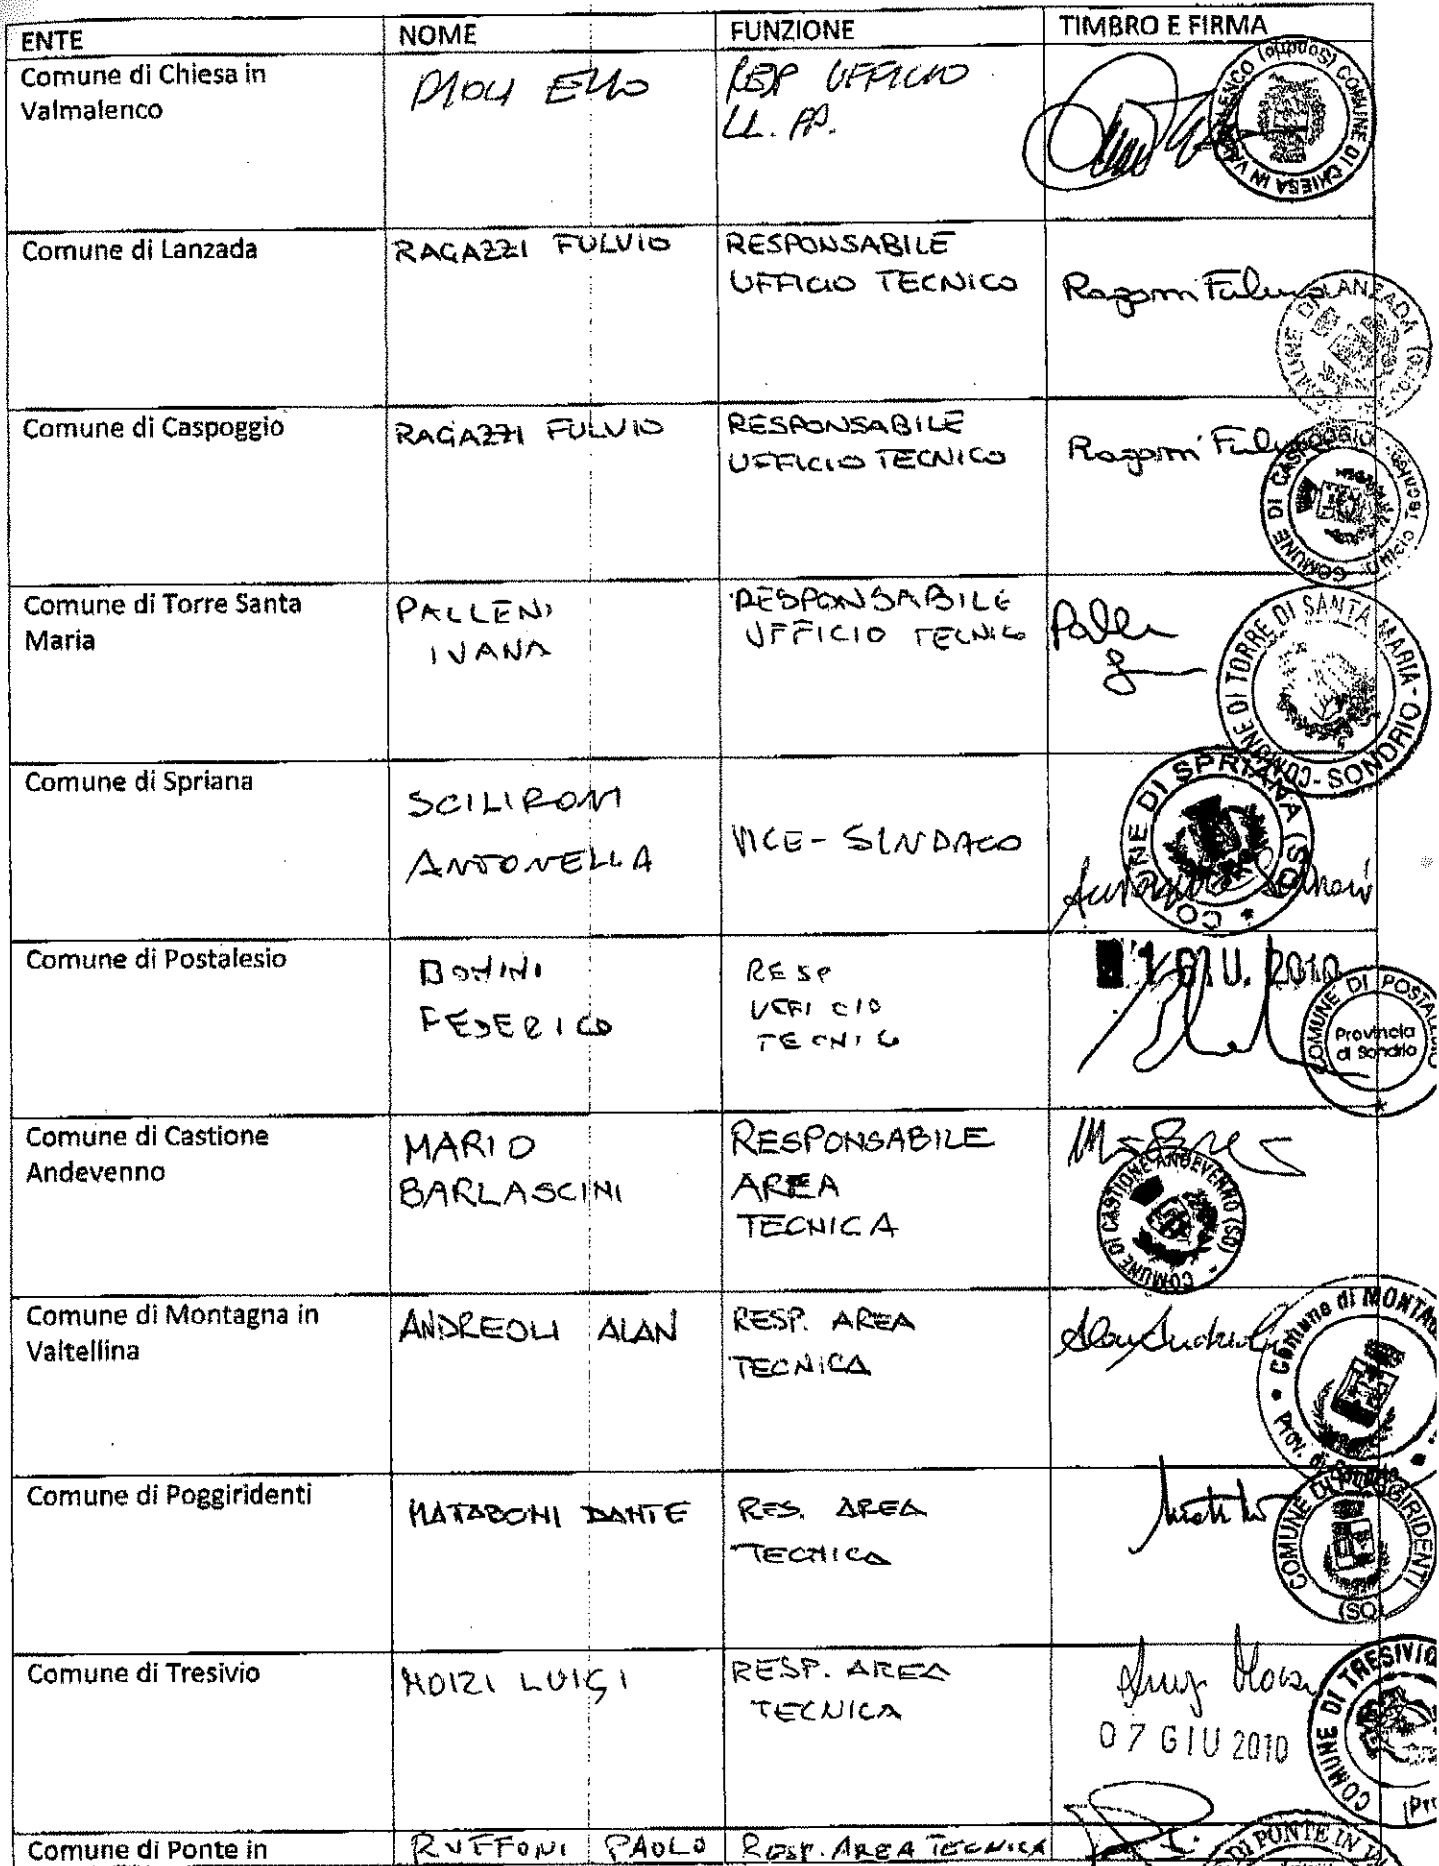 ENTE NOME FUNZIONE TIMBRO E FIRMA
Comune di Chiesa in
Valmalenco
ELIO
RESP UFFICIO
LL. PP.
COMUNE DI CHIESA IN VALMALENCO (Sondrio)
Comune di Lanzada
RAGAZZI FULVIO
RESPONSABILE
UFFICIO TECNICO
COMUNE DI LANZADA
Comune di Caspoggio
RAGAZZI FULVIO
RESPONSABILE
UFFICIO TECNICO
COMUNE DI CASPOGGIO
Ufficio Tecnico
Comune di Torre Santa
Maria
PALLENI
IVANA
RESPONSABILE
UFFICIO TECNICO
COMUNE DI TORRE DI SANTA MARIA - SONDRIO
Comune di Spriana
ANTONELLA
VICE-SINDACO
COMUNE DI SPRIANA (SO)
Comune di Postalesio
BONINI
FEDERICO
RESP
UFFICIO
TECNICO
GIU. 2010
COMUNE DI POSTALESIO
Provincia
di Sondrio
Comune di Castione
Andevenno
MARIO
BARLASCINI
RESPONSABILE
AREA
TECNICA
COMUNE DI CASTIONE ANDEVENNO (SO)
Comune di Montagna in
Valtellina
ANDREOLI ALAN
RESP. AREA
TECNICA
Comune di MONTAG
Prov. di Sondrio
Comune di Poggiridenti
MATABONI DANTE
RES. AREA
TECNICA
COMUNE DI POGGIRIDENTI
(SO)
Comune di Tresivio
MOIZI LUIGI
RESP. AREA
TECNICA
07 GIU 2010
COMUNE DI TRESIVIO
Comune di Ponte in
RUFFONI PAOLO
RESP. AREA TECNICA
DI PONTE IN